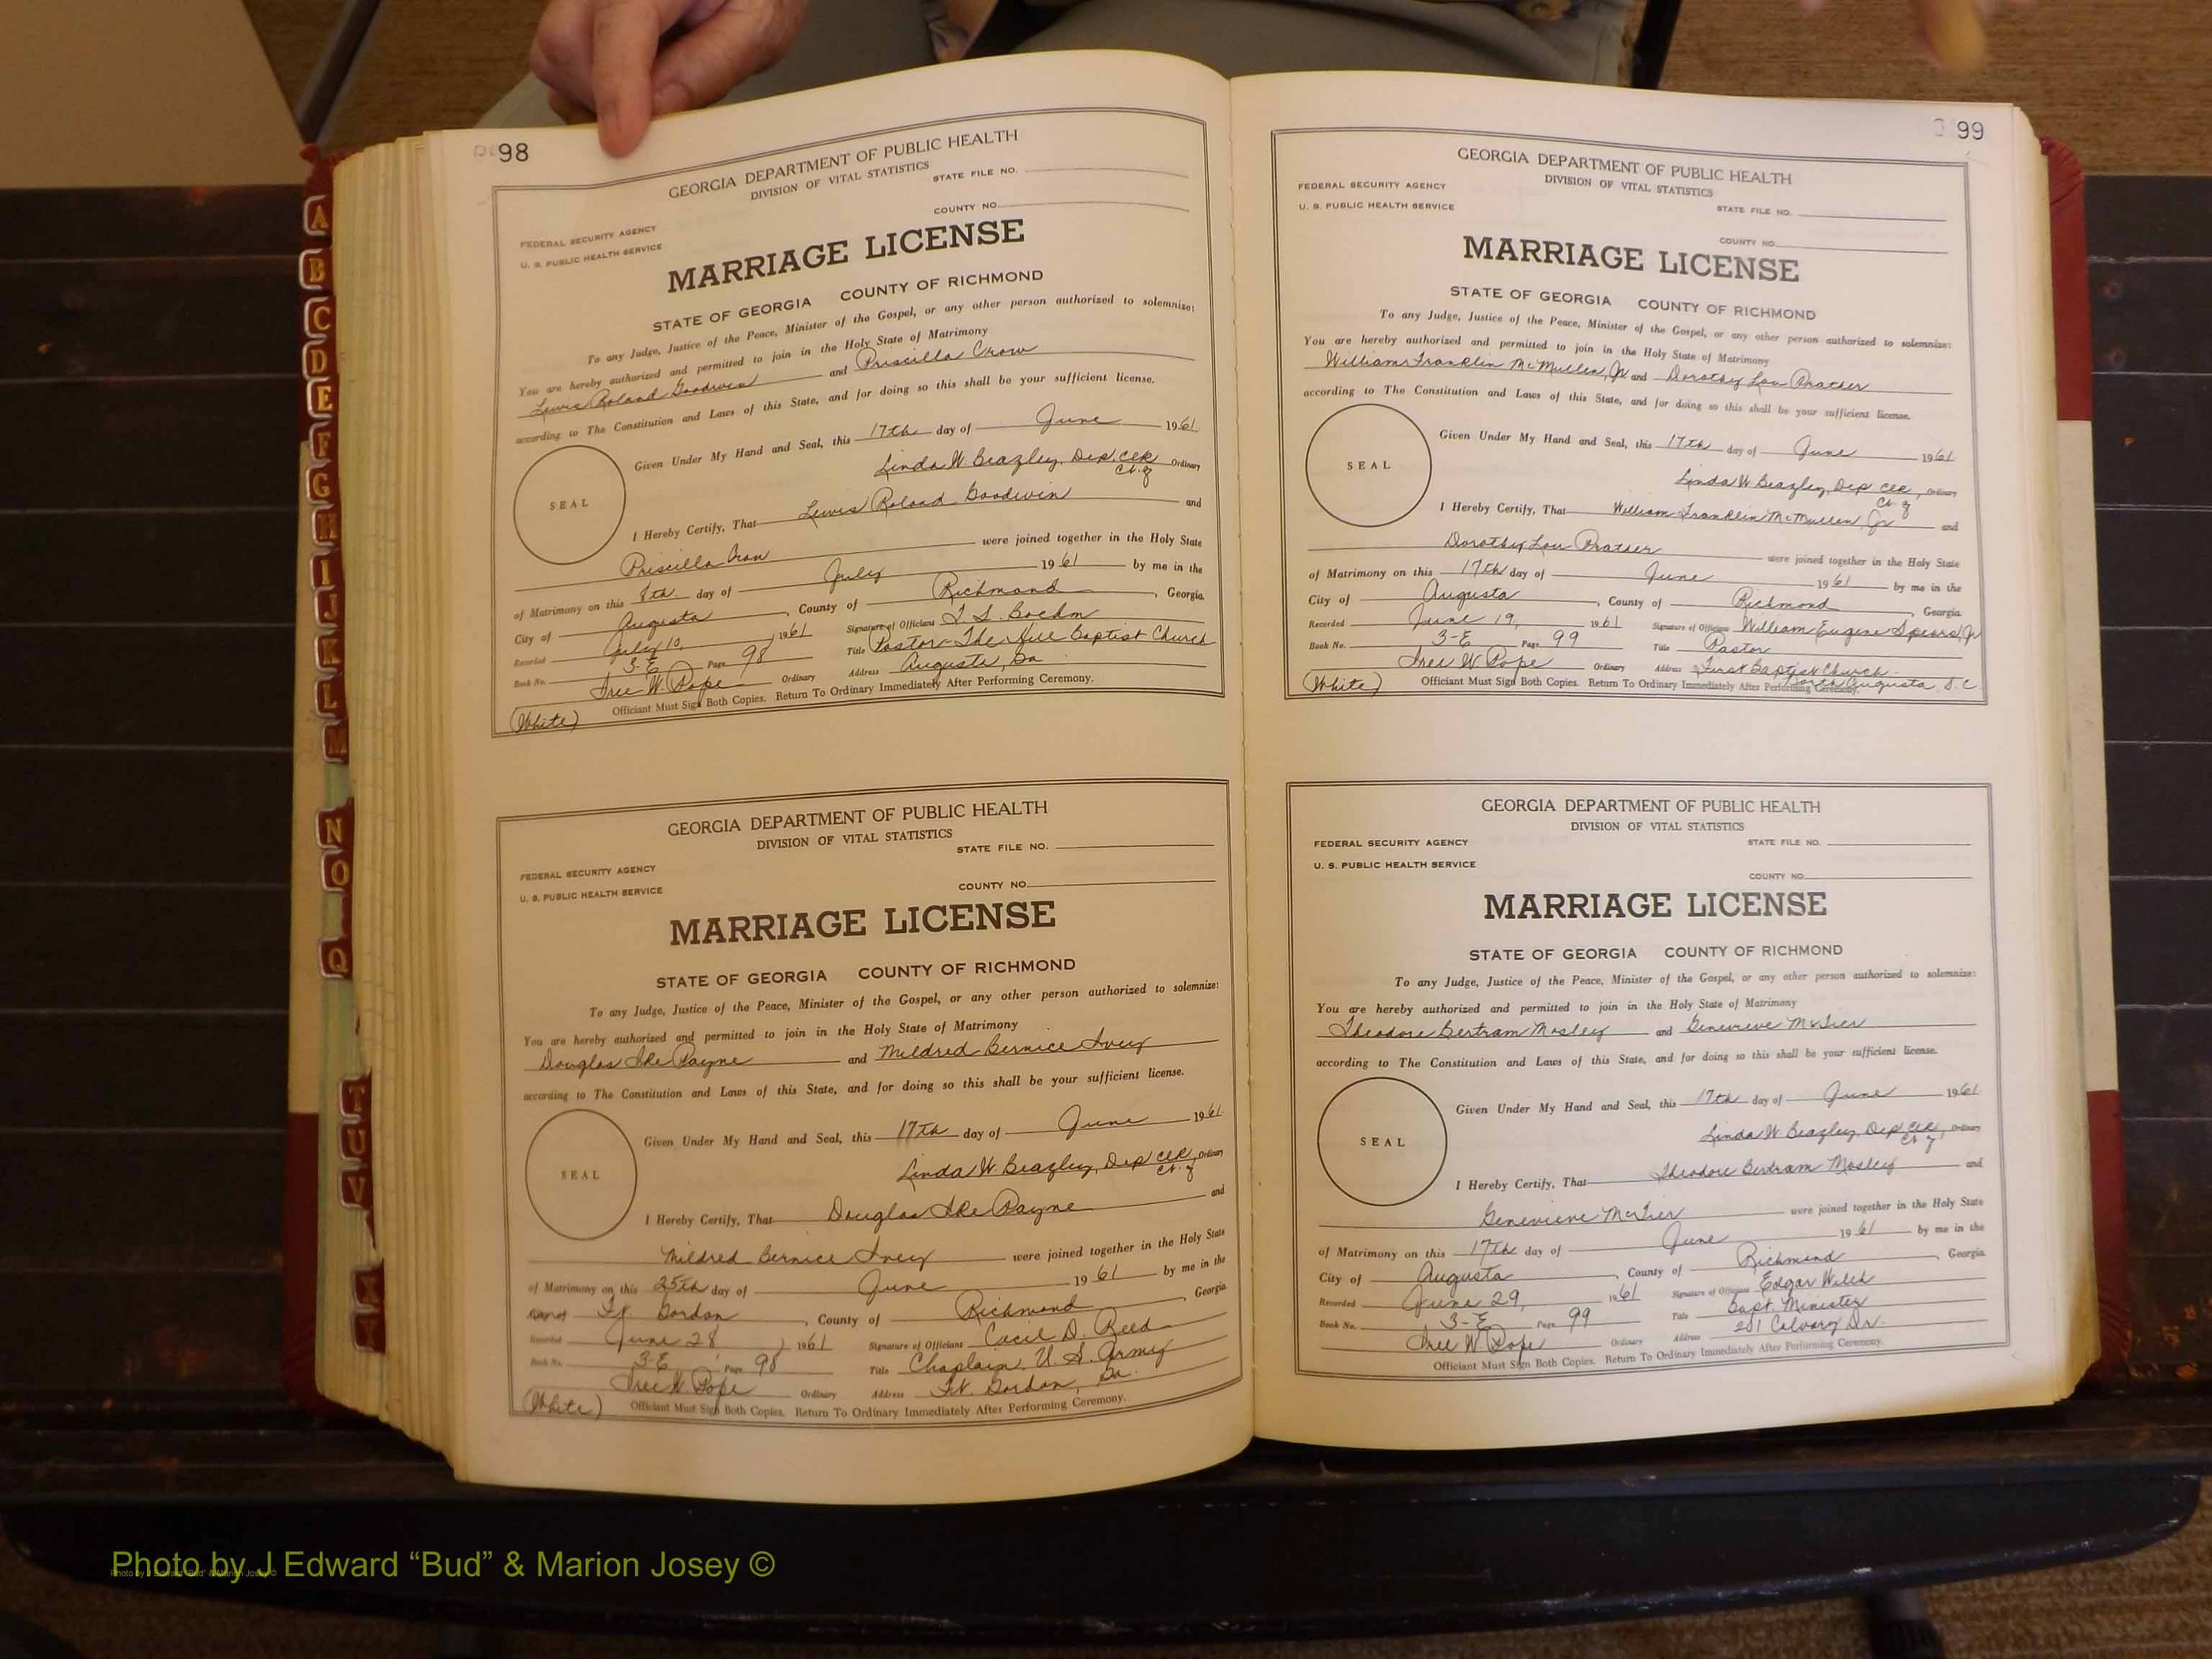 98
GEORGIA DEPARTMENT OF PUBLIC HEALTH
DIVISION OF VITAL STATISTICS
STATE FILE NO.
COUNTY NO.
FEDERAL SECURITY AGENCY
U. S. PUBLIC HEALTH SERVICE
MARRIAGE LICENSE
STATE OF GEORGIA COUNTY OF RICHMOND
To any Judge, Justice of the Peace, Minister of the Gospel, or any other person authorized to solemnize:
You are hereby authorized and permitted to join in the Holy State of Matrimony
Lewis Roland Goodwin and Priscilla Crow
according to The Constitution and Laws of this State, and for doing so this shall be your sufficient license.
Given Under My Hand and Seal, this 17th day of June 1961
Linda W Beazley, Dep. Clk Ordinary
Ct. of
SEAL
I Hereby Certify, That Lewis Roland Goodwin and
Priscilla Crow were joined together in the Holy State
of Matrimony on this 8th day of July 1961 by me in the
City of Augusta, County of Richmond, Georgia.
Recorded July 10, 1961 Signature of Officiant Boehm
Book No. 3-E Page 98 Title Pastor - The Baptist Church
W. Pope Ordinary Address Augusta, Ga
(White) Officiant Must Sign Both Copies. Return To Ordinary Immediately After Performing Ceremony.
GEORGIA DEPARTMENT OF PUBLIC HEALTH
DIVISION OF VITAL STATISTICS
STATE FILE NO.
FEDERAL SECURITY AGENCY
U. S. PUBLIC HEALTH SERVICE
COUNTY NO.
MARRIAGE LICENSE
STATE OF GEORGIA COUNTY OF RICHMOND
To any Judge, Justice of the Peace, Minister of the Gospel, or any other person authorized to solemnize:
You are hereby authorized and permitted to join in the Holy State of Matrimony
Douglas Ike Payne and Mildred Bernice Ivey
according to The Constitution and Laws of this State, and for doing so this shall be your sufficient license.
Given Under My Hand and Seal, this 17th day of June 1961
Linda W. Beazley, Dep Clk, Ordinary
Ct. of
SEAL
I Hereby Certify, That Douglas Ike Payne and
Mildred Bernice Ivey were joined together in the Holy State
of Matrimony on this 25th day of June 1961 by me in the
Ft. Gordon, County of Richmond Georgia
Recorded June 28, 1961 Signature of Officiant Cecil D. Reed
Book No. 3-E Page 98 Title Chaplain, U.S. Army
W. Pope Ordinary Address Ft. Gordon, Ga.
(White) Officiant Must Sign Both Copies. Return To Ordinary Immediately After Performing Ceremony.
99
GEORGIA DEPARTMENT OF PUBLIC HEALTH
DIVISION OF VITAL STATISTICS
FEDERAL SECURITY AGENCY
U. S. PUBLIC HEALTH SERVICE
STATE FILE NO.
COUNTY NO.
MARRIAGE LICENSE
STATE OF GEORGIA COUNTY OF RICHMOND
To any Judge, Justice of the Peace, Minister of the Gospel, or any other person authorized to solemnize:
You are hereby authorized and permitted to join in the Holy State of Matrimony
William Franklin McMullen, Jr and Dorothy Lou Prather
according to The Constitution and Laws of this State, and for doing so this shall be your sufficient license.
Given Under My Hand and Seal, this 17th day of June 1961
Linda W Beazley, Dep Clk, Ordinary
Ct. of
SEAL
I Hereby Certify, That William Franklin McMullen, Jr and
Dorothy Lou Prather were joined together in the Holy State
of Matrimony on this 17th day of June 1961 by me in the
City of Augusta, County of Richmond, Georgia
Recorded June 19, 1961 Signature of Officiant William Eugene Spears, Jr
Book No. 3-E Page 99 Title Pastor
W Pope Ordinary Address First Baptist Church
North Augusta, S.C.
(White) Officiant Must Sign Both Copies. Return To Ordinary Immediately After Performing Ceremony.
GEORGIA DEPARTMENT OF PUBLIC HEALTH
DIVISION OF VITAL STATISTICS
FEDERAL SECURITY AGENCY
STATE FILE NO.
U. S. PUBLIC HEALTH SERVICE
COUNTY NO.
MARRIAGE LICENSE
STATE OF GEORGIA COUNTY OF RICHMOND
To any Judge, Justice of the Peace, Minister of the Gospel, or any other person authorized to solemnize:
You are hereby authorized and permitted to join in the Holy State of Matrimony
Theodore Bertram Mosley and Genevieve McTier
according to The Constitution and Laws of this State, and for doing so this shall be your sufficient license.
Given Under My Hand and Seal, this 17th day of June 1961
Linda W Beazley, Dep Clk, Ordinary
Ct. of
SEAL
I Hereby Certify, That Theodore Bertram Mosley and
Genevieve McTier were joined together in the Holy State
of Matrimony on this 17th day of June 1961 by me in the
City of Augusta, County of Richmond, Georgia
Recorded June 29, 1961 Signature of Officiant Edgar Welch
Book No. 3-E Page 99 Title Bapt. Minister
W Pope Ordinary Address 201 Calvary Dr.
Officiant Must Sign Both Copies. Return To Ordinary Immediately After Performing Ceremony.
A
B
C
D
E
F
G
H
I
J
K
L
M
N
O
Q
T
U
V
Photo by J Edward “Bud” & Marion Josey ©
Photo by J Edward “Bud” & Marion Josey ©